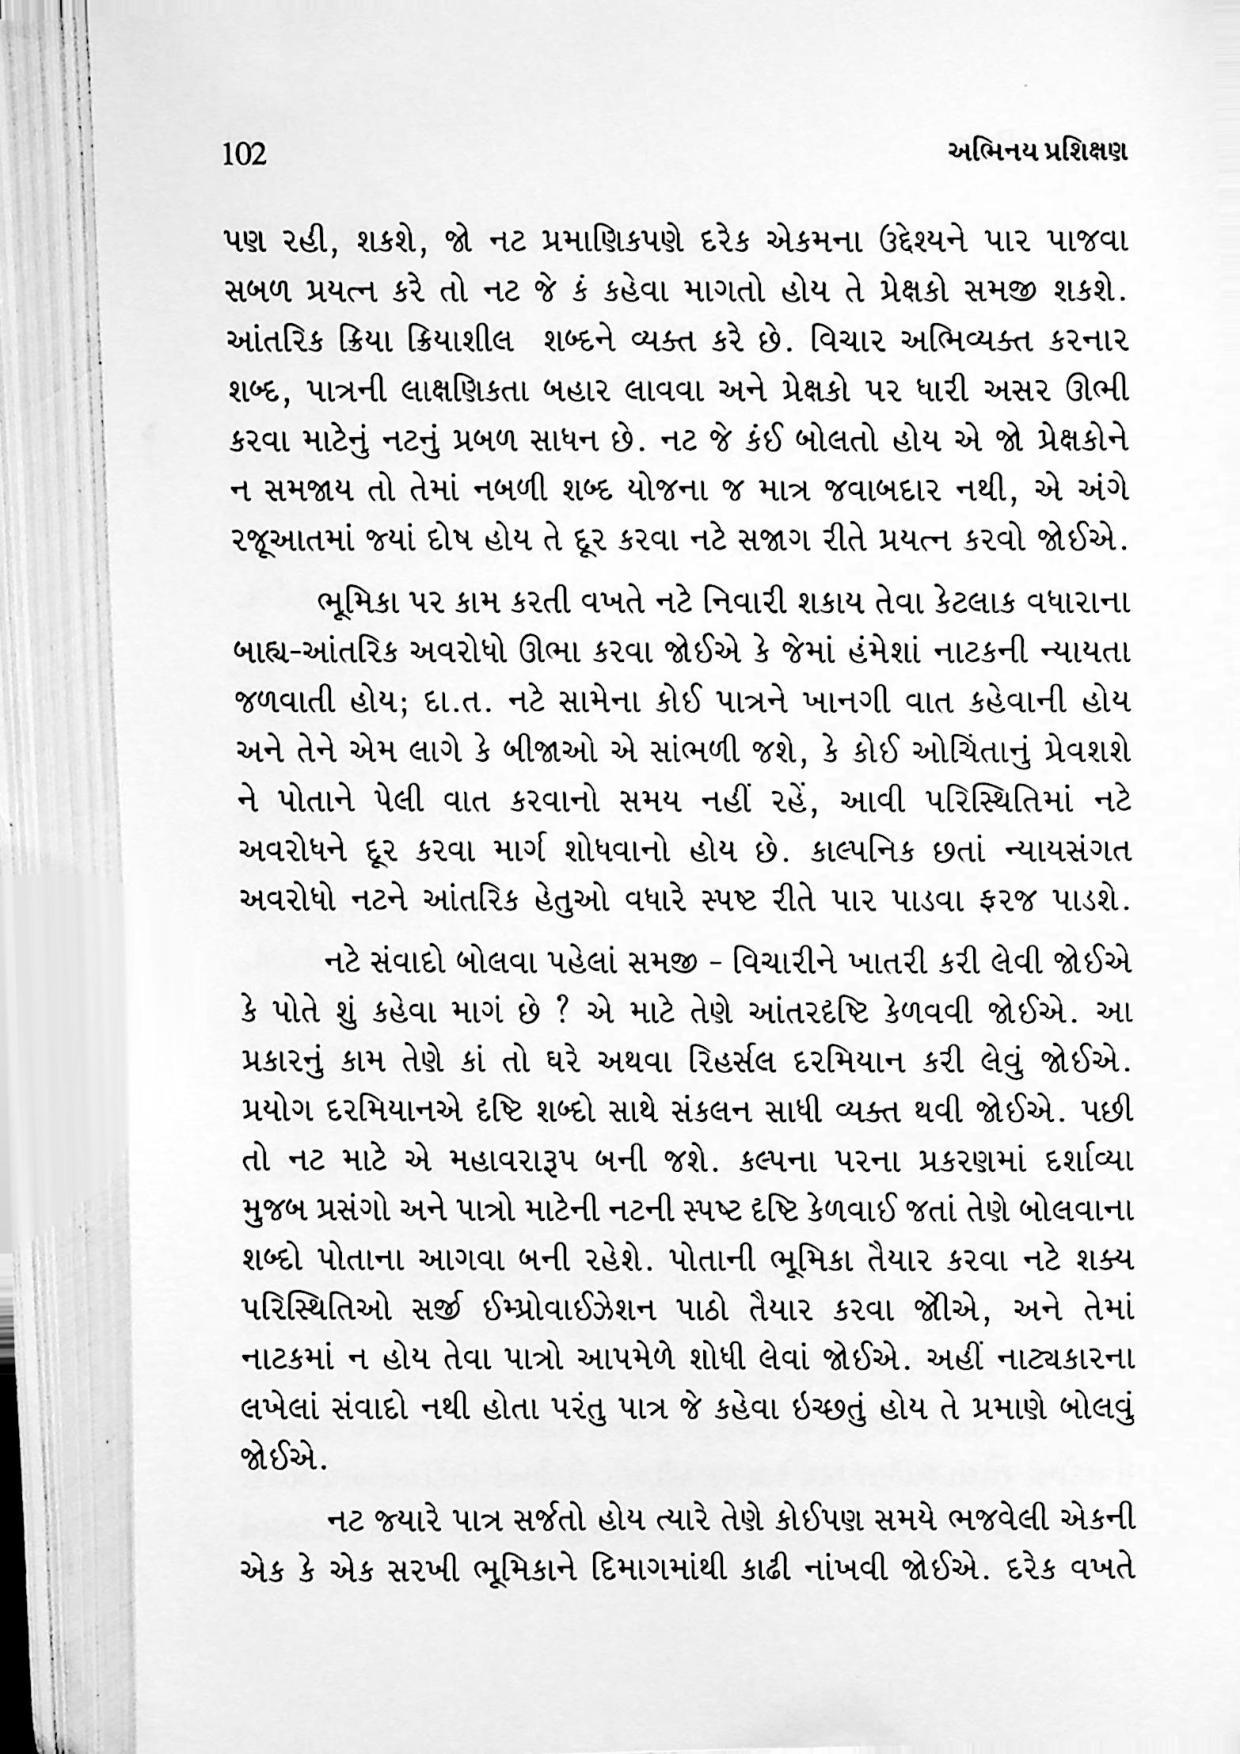 102 અભિનય પ્રશિક્ષણ
પણ રહી, શકશે, જો નટ પ્રમાણિકપણે દરેક એકમના ઉદ્દેશ્યને પાર પાજવા
સબળ પ્રયત્ન કરે તો નટ જે કં કહેવા માગતો હોય તે પ્રેક્ષકો સમજી શકશે.
આંતરિક ક્રિયા ક્રિયાશીલ શબ્દને વ્યક્ત કરે છે. વિચાર અભિવ્યક્ત કરનાર
શબ્દ, પાત્રની લાક્ષણિકતા બહાર લાવવા અને પ્રેક્ષકો પર ધારી અસર ઊભી
કરવા માટેનું નટનું પ્રબળ સાધન છે. નટ જે કંઈ બોલતો હોય એ જો પ્રેક્ષકોને
ન સમજાય તો તેમાં નબળી શબ્દ યોજના જ માત્ર જવાબદાર નથી, એ અંગે
રજૂઆતમાં જયાં દોષ હોય તે દૂર કરવા નટે સજાગ રીતે પ્રયત્ન કરવો જોઈએ.
ભૂમિકા પર કામ કરતી વખતે નટે નિવારી શકાય તેવા કેટલાક વધારાના
બાહ્ય-આંતરિક અવરોધો ઊભા કરવા જોઈએ કે જેમાં હંમેશાં નાટકની ન્યાયતા
જળવાતી હોય; દા.ત. નટે સામેના કોઈ પાત્રને ખાનગી વાત કહેવાની હોય
અને તેને એમ લાગે કે બીજાઓ એ સાંભળી જશે, કે કોઈ ઓચિંતાનું પ્રેવશશે
ને પોતાને પેલી વાત કરવાનો સમય નહીં રહેં, આવી પરિસ્થિતિમાં નટે
અવરોધને દૂર કરવા માર્ગ શોધવાનો હોય છે. કાલ્પનિક છતાં ન્યાયસંગત
અવરોધો નટને આંતરિક હેતુઓ વધારે સ્પષ્ટ રીતે પાર પાડવા ફરજ પાડશે.
નટે સંવાદો બોલવા પહેલાં સમજી - વિચારીને ખાતરી કરી લેવી જોઈએ
કે પોતે શું કહેવા માગં છે ? એ માટે તેણે આંતરદૃષ્ટિ કેળવવી જોઈએ. આ
પ્રકારનું કામ તેણે કાં તો ઘરે અથવા રિહર્સલ દરમિયાન કરી લેવું જોઈએ.
પ્રયોગ દરમિયાનએ દૃષ્ટિ શબ્દો સાથે સંકલન સાધી વ્યક્ત થવી જોઈએ. પછી
તો નટ માટે એ મહાવરારૂપ બની જશે. કલ્પના પરના પ્રકરણમાં દર્શાવ્યા
મુજબ પ્રસંગો અને પાત્રો માટેની નટની સ્પષ્ટ દૃષ્ટિ કેળવાઈ જતાં તેણે બોલવાના
શબ્દો પોતાના આગવા બની રહેશે. પોતાની ભૂમિકા તૈયાર કરવા નટે શક્ય
પરિસ્થિતિઓ સર્જી ઈમ્પ્રોવાઈઝેશન પાઠો તૈયાર કરવા જોીએ, અને તેમાં
નાટકમાં ન હોય તેવા પાત્રો આપમેળે શોધી લેવાં જોઈએ. અહીં નાટ્યકારના
લખેલાં સંવાદો નથી હોતા પરંતુ પાત્ર જે કહેવા ઇચ્છતું હોય તે પ્રમાણે બોલવું
જોઈએ.
નટ જયારે પાત્ર સર્જતો હોય ત્યારે તેણે કોઈપણ સમયે ભજવેલી એકની
એક કે એક સરખી ભૂમિકાને દિમાગમાંથી કાઢી નાંખવી જોઈએ. દરેક વખતે